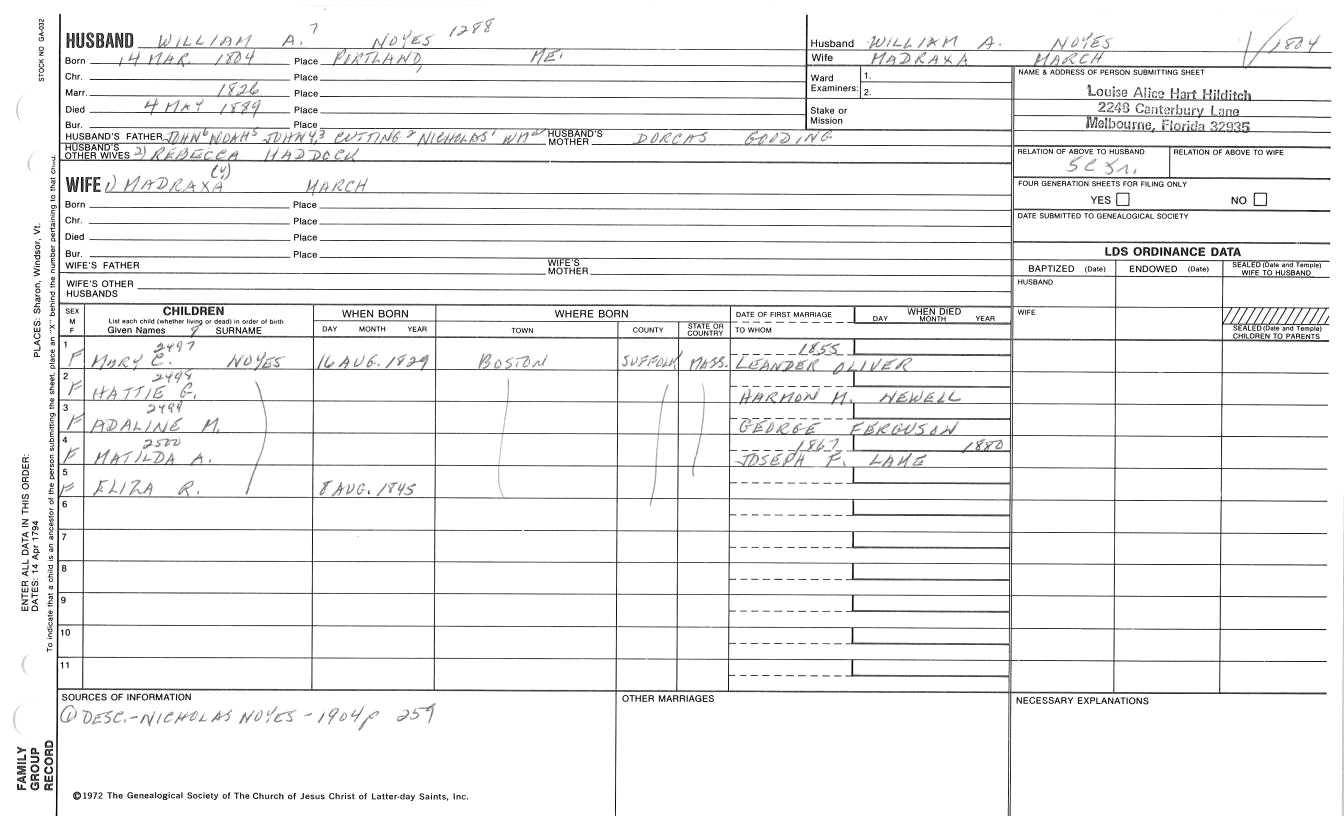 STOCK NO GA-032
PLACES: Sharon, Windsor, Vt.
ENTER ALL DATA IN THIS ORDER:
DATES: 14 Apr 1794
To indicate that a child is an ancestor of the person submitting the sheet, place an "X" behind the number pertaining to that child.
FAMILY GROUP RECORD
HUSBAND WILLIAM A. 7 NOYES 1288
Born 14 MAR. 1804 Place PORTLAND, ME.
Chr. Place
Marr. 1826 Place
Died 4 MAY 1889 Place
Bur. Place
HUSBAND'S FATHER JOHN6 NOAH5 JOHN4,3 CUTTING2 NICHOLAS1 WMa HUSBAND'S MOTHER DORCAS GOODING
HUSBAND'S OTHER WIVES 2) REBECCA HADDOCK
(Y)
WIFE 1) MADRAXA MARCH
Born Place
Chr. Place
Died Place
Bur. Place
WIFE'S FATHER WIFE'S MOTHER
WIFE'S OTHER HUSBANDS
Husband WILLIAM A. NOYES 1804
Wife MADRAXA MARCH
Ward Examiners: 1.
2.
Stake or Mission
NAME & ADDRESS OF PERSON SUBMITTING SHEET
Louise Alice Hart Hilditch
2248 Canterbury Lane
Melbourne, Florida 32935
RELATION OF ABOVE TO HUSBAND RELATION OF ABOVE TO WIFE
FOUR GENERATION SHEETS FOR FILING ONLY
YES NO
DATE SUBMITTED TO GENEALOGICAL SOCIETY
LDS ORDINANCE DATA
BAPTIZED (Date) ENDOWED (Date) SEALED (Date and Temple) WIFE TO HUSBAND
HUSBAND
WIFE
SEALED (Date and Temple) CHILDREN TO PARENTS
SEX M F
CHILDREN
List each child (whether living or dead) in order of birth
Given Names 8 SURNAME
WHEN BORN
DAY MONTH YEAR
WHERE BORN
TOWN COUNTY STATE OR COUNTRY
DATE OF FIRST MARRIAGE
TO WHOM
WHEN DIED
DAY MONTH YEAR
1 2497 1855
F MARY C. NOYES 16 AUG. 1829 BOSTON SUFFOLK MASS. LEANDER OLIVER
2 2498
F HATTIE G. HARMON M. NEWELL
3 2499
F ADALINE M. GEORGE FERGUSON
4 2500 1867 1880
F MATILDA A. JOSEPH F. LANE
5
F ELIZA R. 8 AUG. 1845
6
7
8
9
10
11
SOURCES OF INFORMATION
① DESC.-NICHOLAS NOYES-1904 p 259
OTHER MARRIAGES
NECESSARY EXPLANATIONS
©1972 The Genealogical Society of The Church of Jesus Christ of Latter-day Saints, Inc.